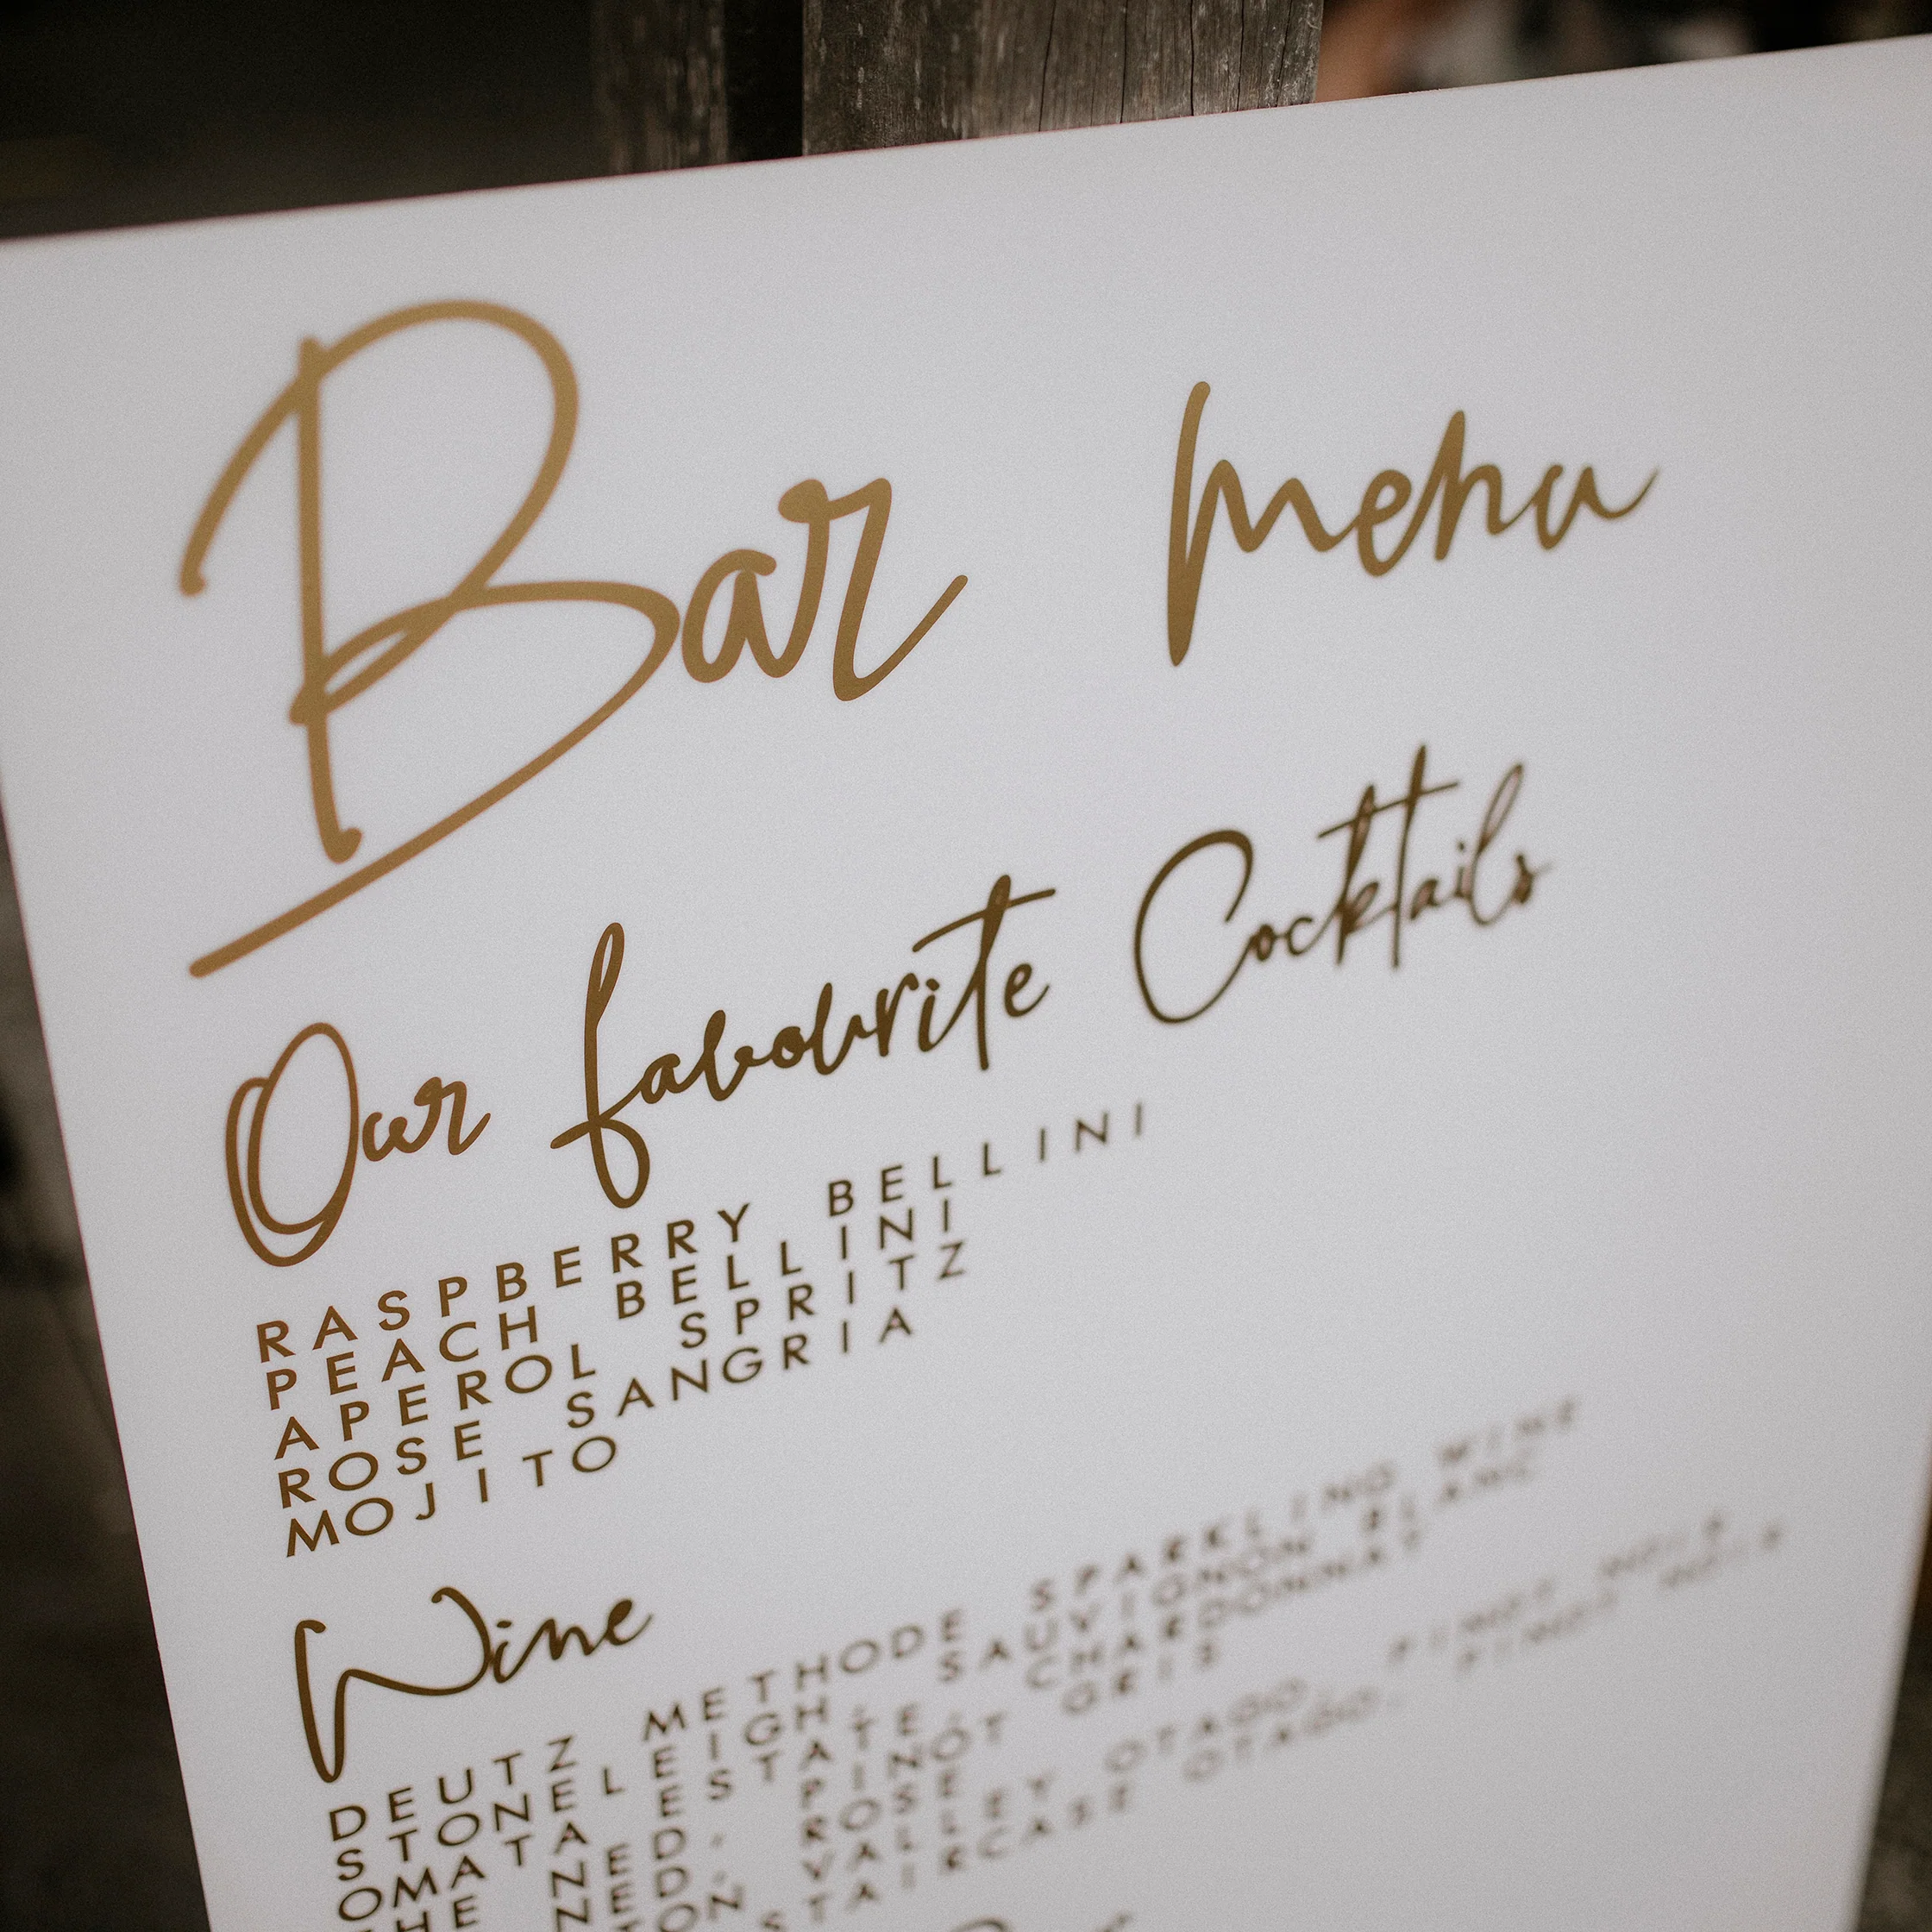 Bar menu
Our favourite Cocktails
RASPBERRY BELLINI
PEACH BELLINI
APEROL SPRITZ
ROSE SANGRIA
MOJITO
Wine
DEUTZ METHODE SPARKLING WINE
STONELEIGH, SAUVIGNON BLANC
OMATA ESTATE, CHARDONNAY
THE NED, PINOT GRIS
NED, ROSE
VALLEY OTAGO, PINOT NOIR
STAIRCASE OTAGO, PINOT NOIR